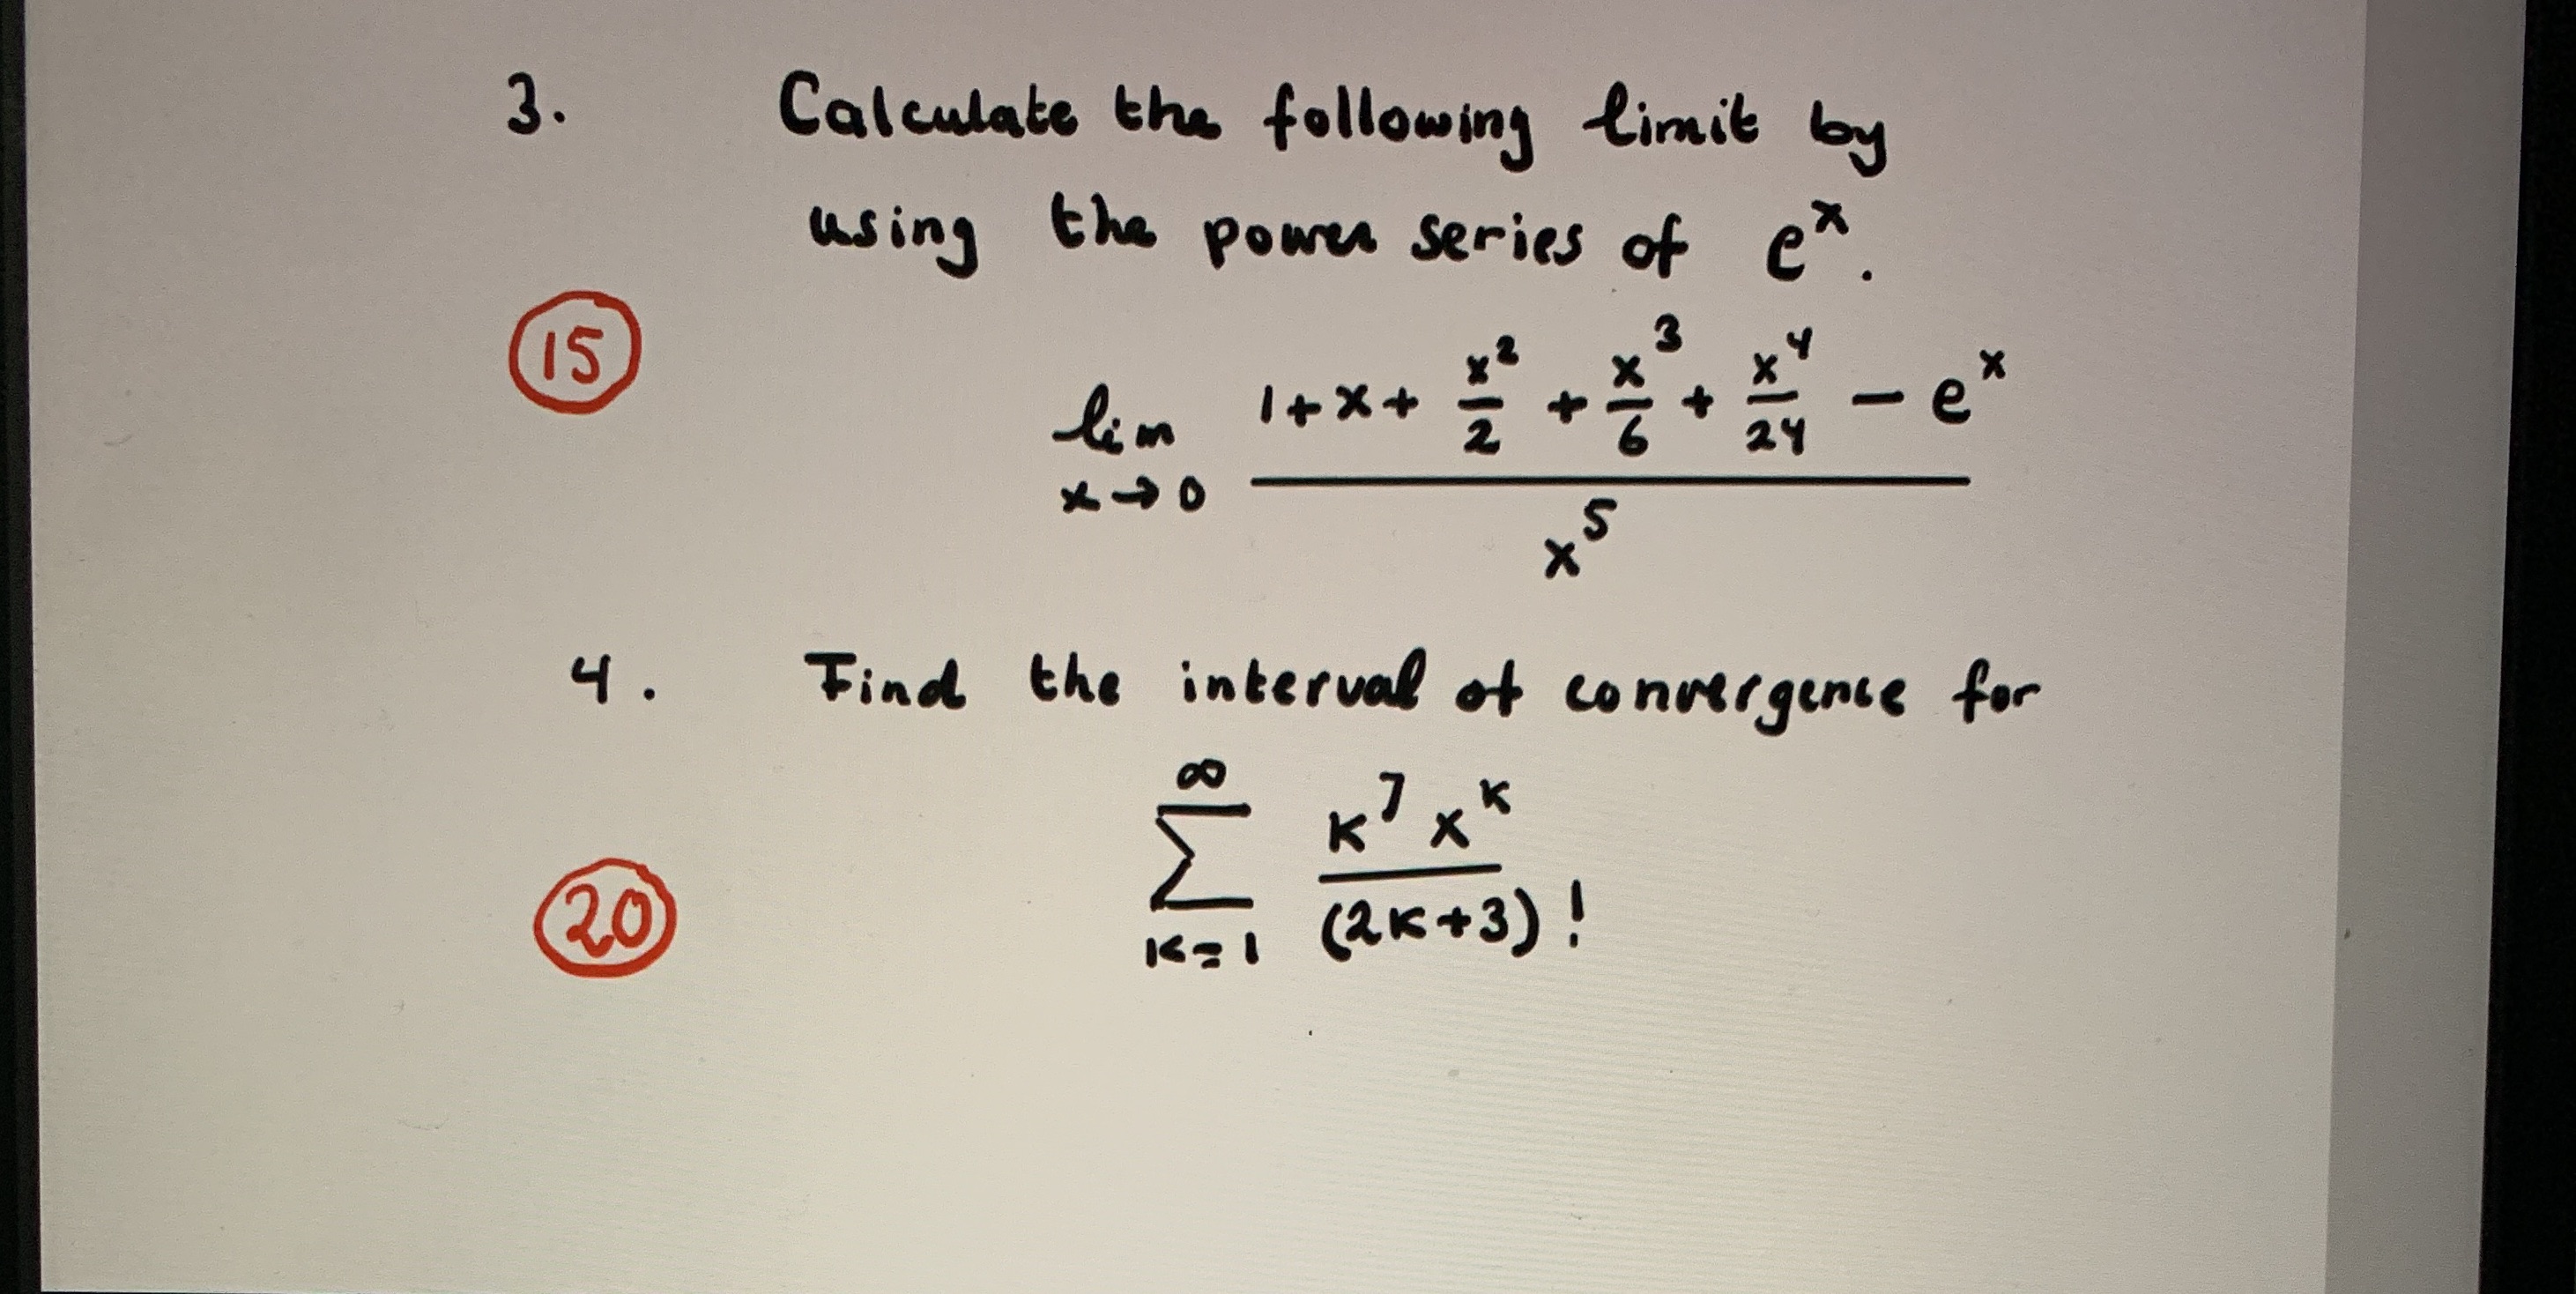 3. Calculate the following limit by
using the power series of eˣ.
15
lim x→0 (1 + x + x²/2 + x³/6 + x⁴/24 − eˣ) / x⁵
4. Find the interval of convergence for
20
∞ Σ k=1 k⁷ xᵏ / (2k+3)!